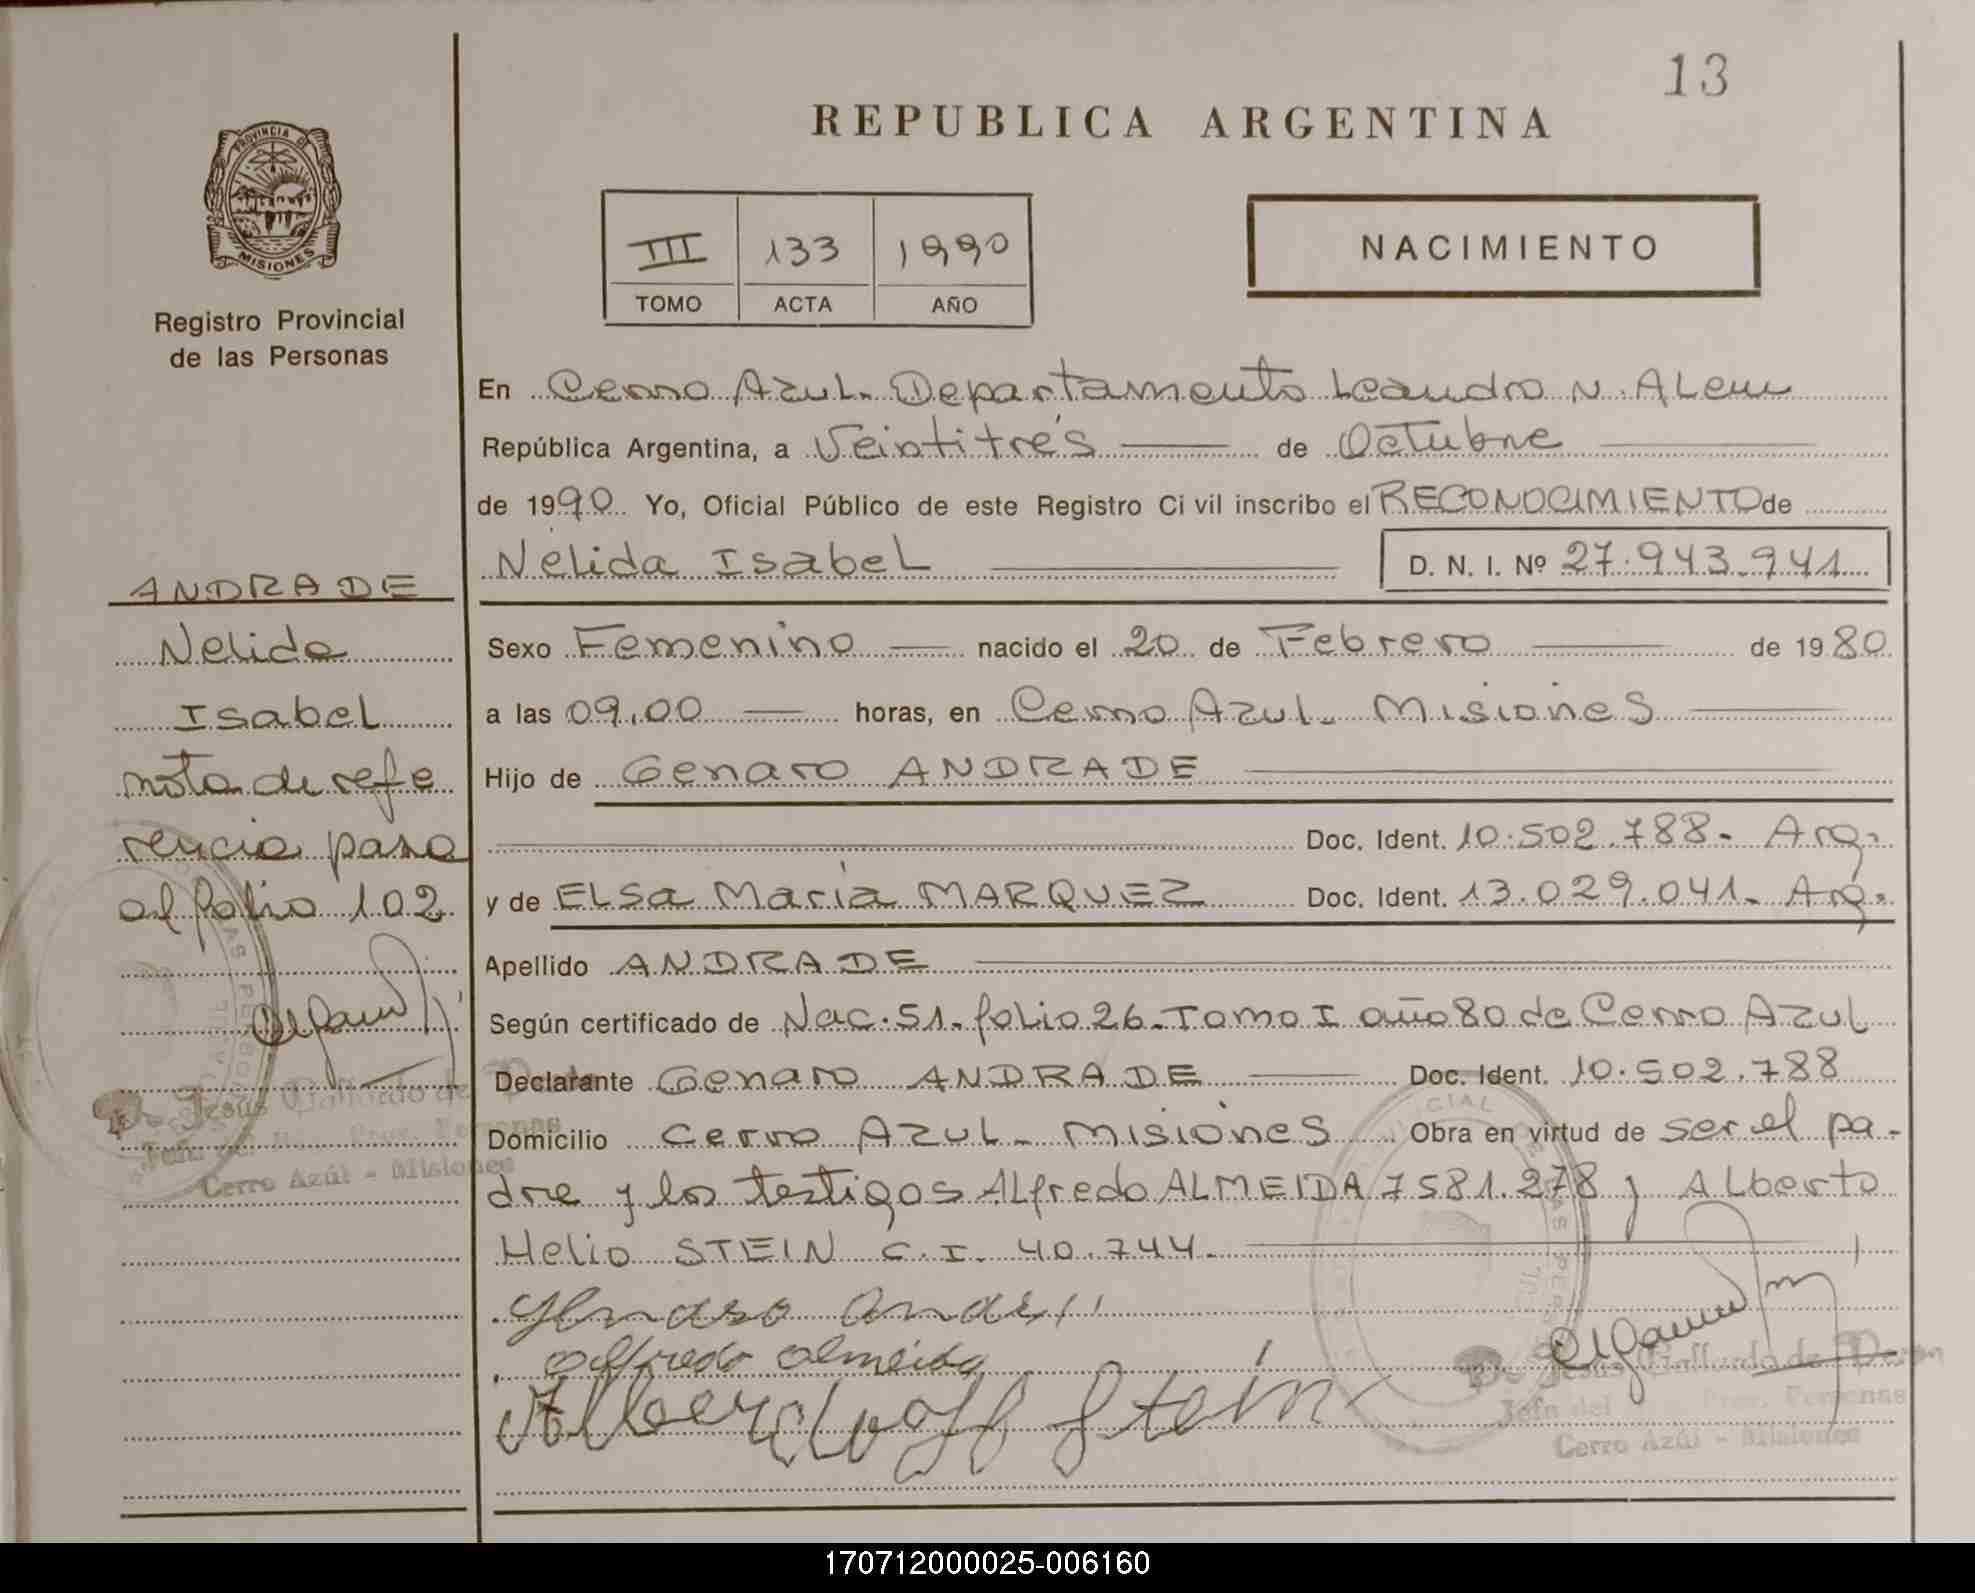 13
REPUBLICA ARGENTINA
PROVINCIA DE
MISIONES
Registro Provincial
de las Personas
III 133 1990
TOMO ACTA AÑO
NACIMIENTO
En Cerro Azul. Departamento Leandro N. Alem
República Argentina, a Veintitrés de Octubre
de 1990 Yo, Oficial Público de este Registro Civil inscribo el RECONOCIMIENTO de
Nélida Isabel D. N. I. Nº 27.943.941
ANDRADE
Nelida
Isabel
nota de refe
rencia pasa
al folio 102
Sexo Femenino nacido el 20 de Febrero de 1980
a las 09,00 horas, en Cerro Azul. Misiones
Hijo de Genaro ANDRADE
Doc. Ident. 10.502.788- Arg.
y de ELSa María MARQUEZ Doc. Ident. 13.029.041- Arg.
Apellido ANDRADE
Según certificado de Nac. 51. folio 26. Tomo I año 80 de Cerro Azul
Declarante Genaro ANDRADE Doc. Ident. 10.502.788
Domicilio Cerro Azul. Misiones Obra en virtud de ser el pa-
dre y los testigos Alfredo ALMEIDA 7581.278 y Alberto
Helio STEIN C.I. 40.744.
alfredo almeida
Stein
Jesús Gallardo de
Jefe del Prov. Personas
Cerro Azúl - Misiones
Jesús Gallardo de
Jefe del Prov. Personas
Cerro Azúl - Misiones
170712000025-006160